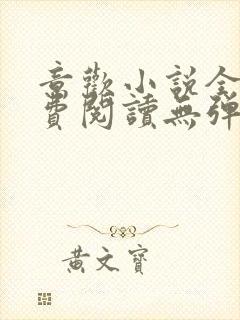 意歡小說全
費閱讀無彈
黃文寶